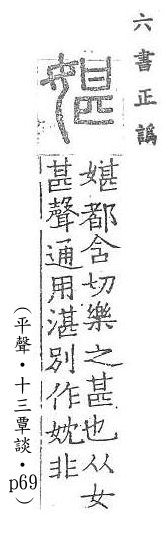 六書正譌
媅
媅都含切樂之甚也从女
甚聲通用湛別作妉非
(平聲‧十三覃談‧p69)